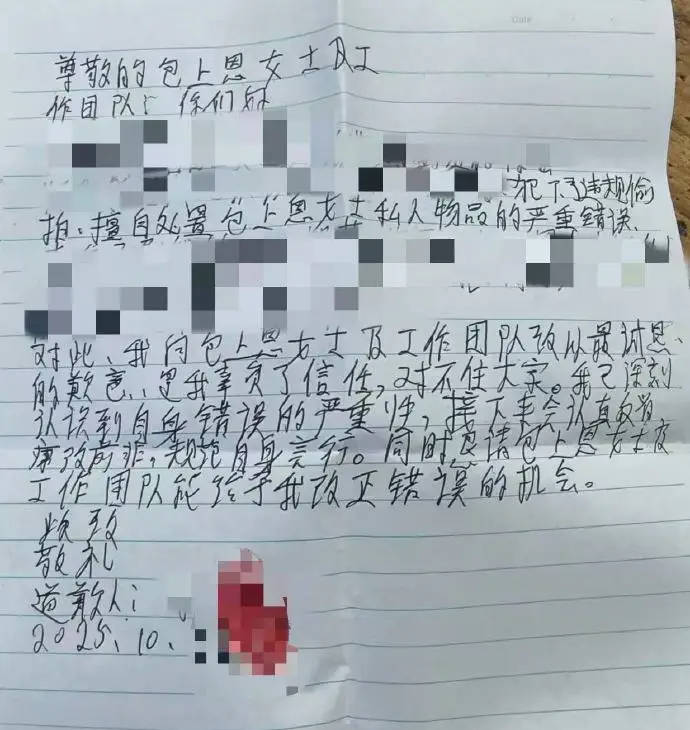 Date
尊敬的包上恩女士及工
作团队：你们好
犯下了违规偷
拍、擅自处置包上恩女士私人物品的严重错误、
对此、我向包上恩女士及工作团队致以最诚恳、
的歉意、是我辜负了信任，对不住大家。我已深刻
认识到自身错误的严重性，接下来会认真反省
痛改前非，规范自身言行。同时恳请包上恩女士及
工作团队能给予我改正错误的机会。
此致
敬礼
道歉人：
2025、10、